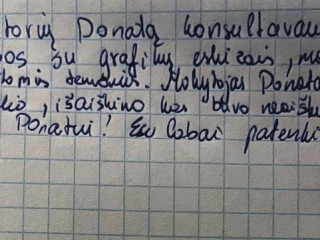 torių Donatą konsultavau
os su grafikų eskizais, m
tomis temomis. Mokytojas Donata
io, išaiškino kas buvo neaišku
Donatui! Esu labai patenki